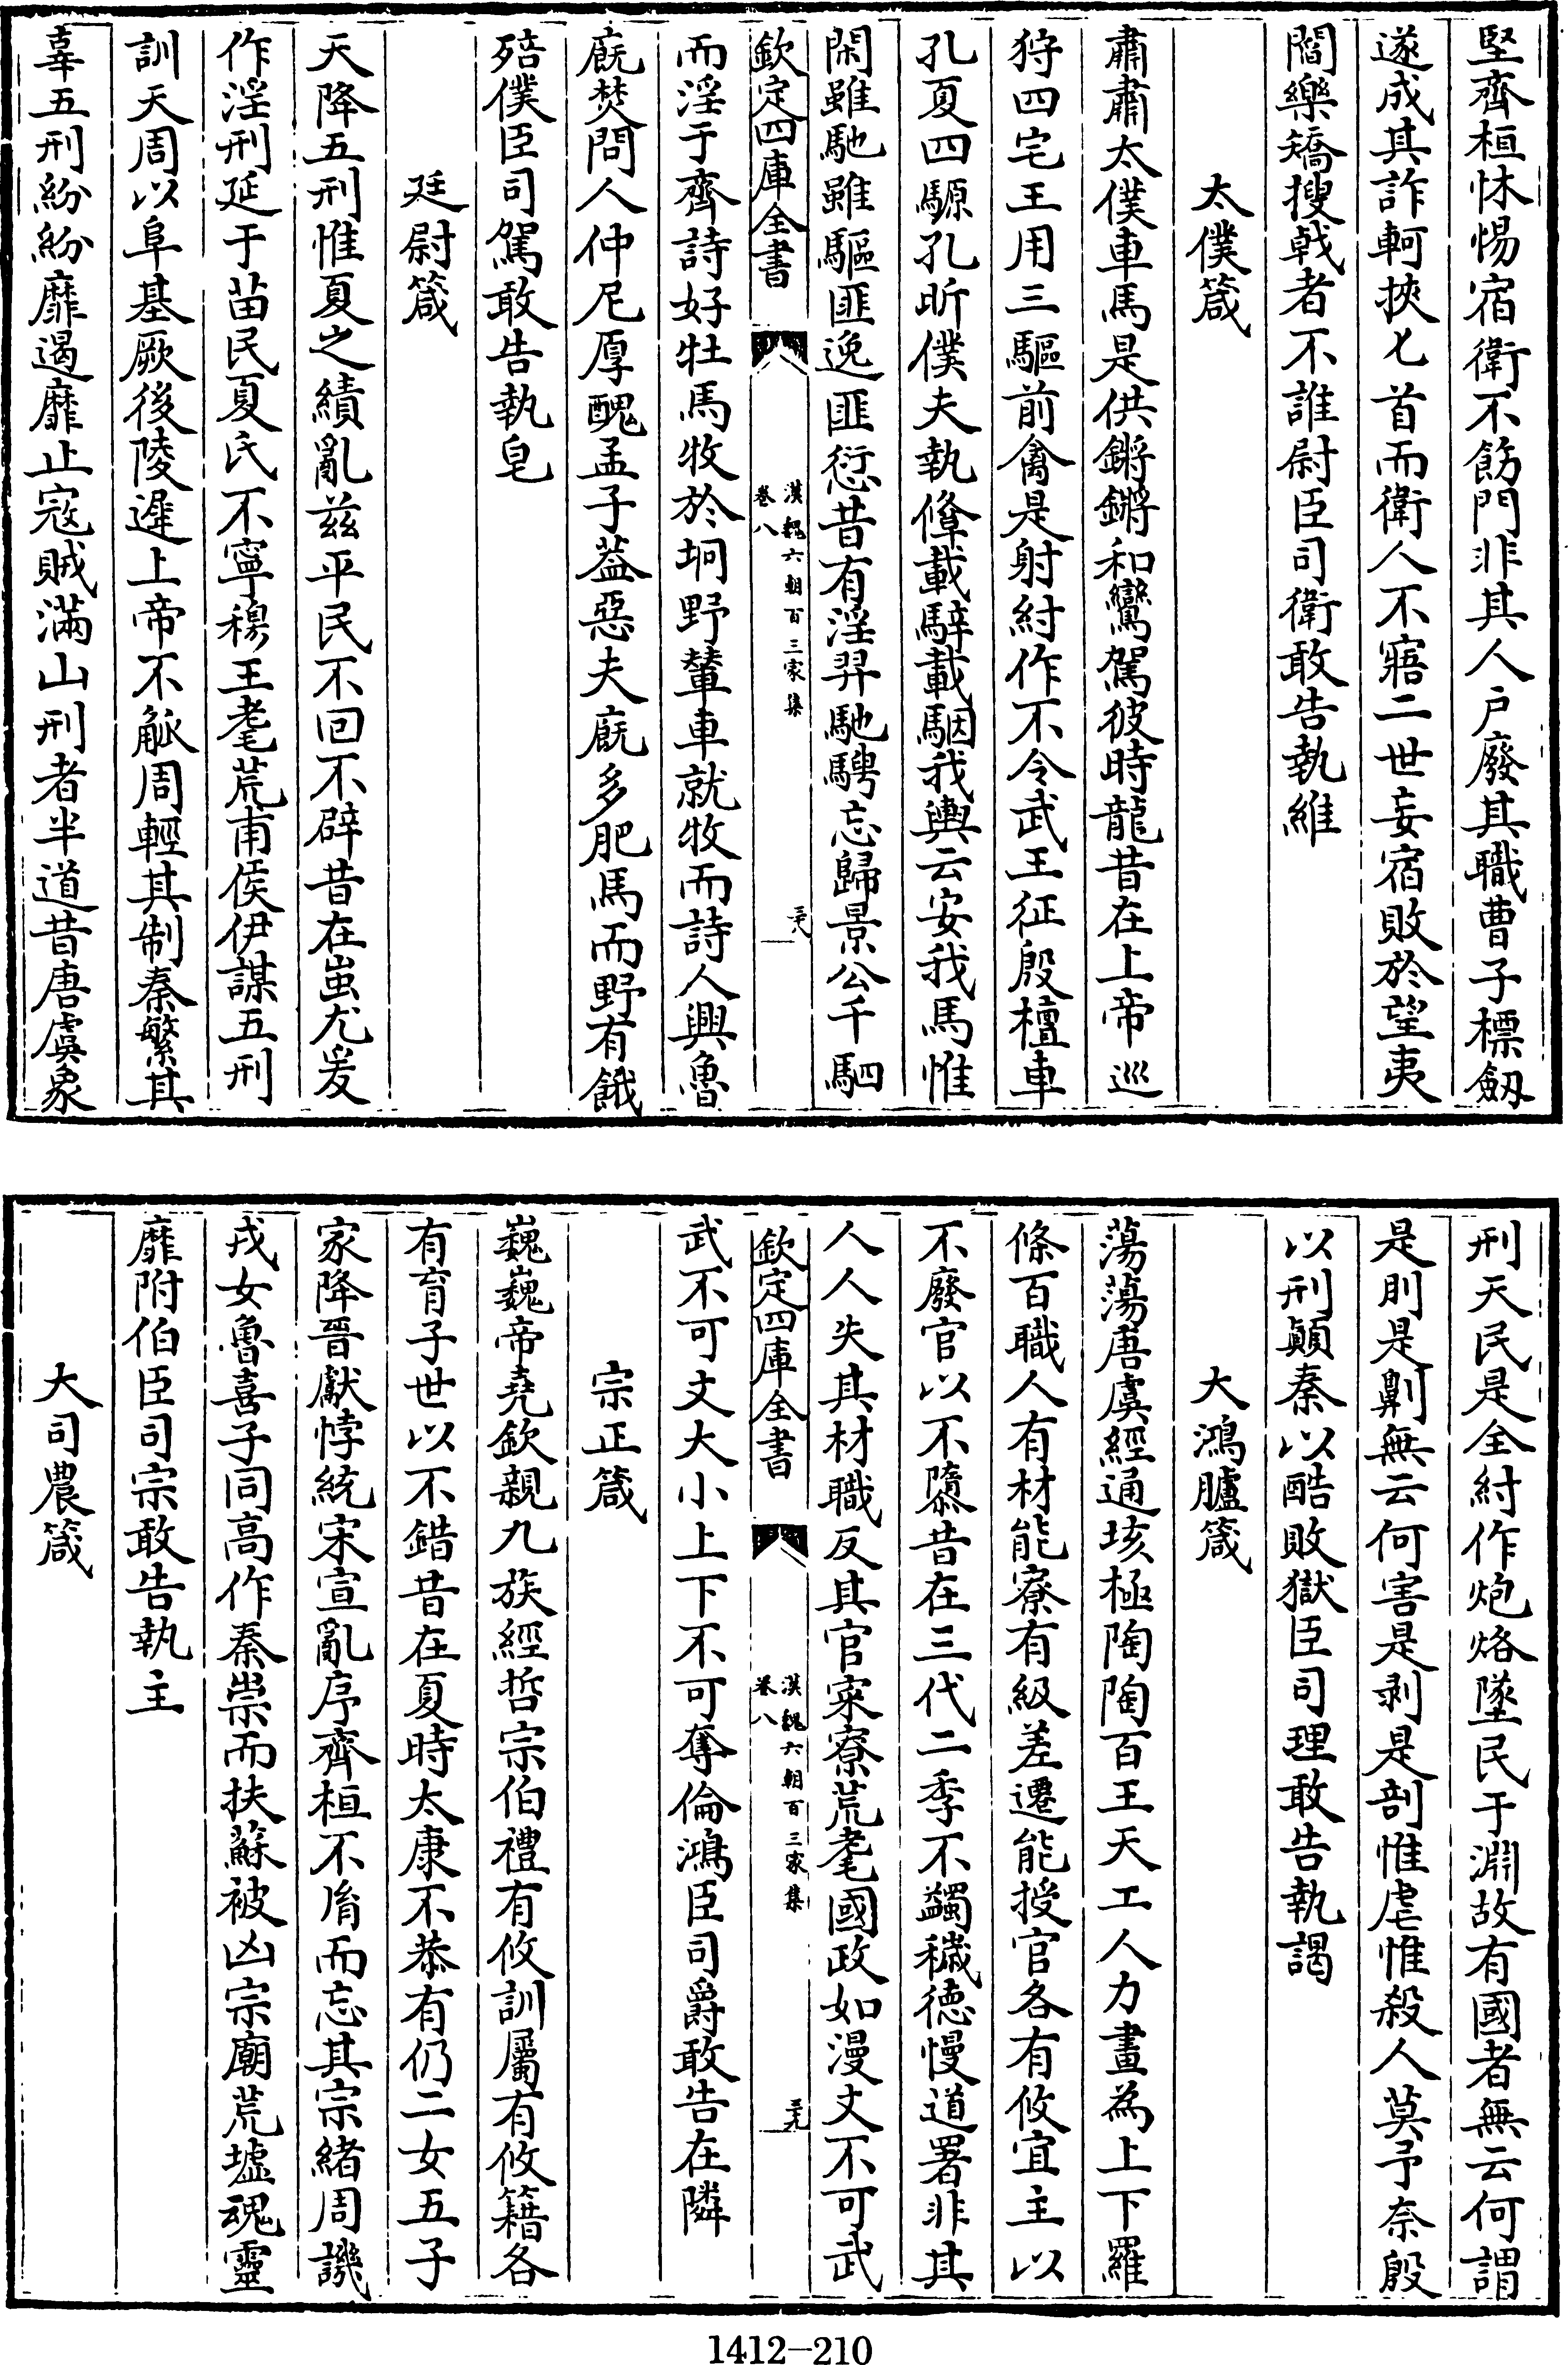 堅齊桓怵惕宿衛不飭門非其人戶廢其職曹子摽劔
遂成其詐軻挾匕首而衛人不寤二世妄宿敗於望夷
閻樂矯搜戟者不誰尉臣司衛敢告執維
太僕箴
肅肅太僕車馬是供鏘鏘和鸞駕彼時龍昔在上帝巡
狩四宅王用三驅前禽是射紂作不令武王征殷檀車
孔夏四騵孔昕僕夫執鞗載騂載駰我輿云安我馬惟
閑雖馳雖驅匪逸匪愆昔有淫羿馳騁忘歸景公千駟
欽定四庫全書
漢魏六朝百三家集
卷八
三十八
而淫于齊詩好牡馬牧於坰野輦車就牧而詩人興魯
廐焚問人仲尼厚醜孟子葢惡夫廐多肥馬而野有餓
殕僕臣司駕敢告執皂
廷尉箴
天降五刑惟夏之績亂兹平民不回不辟昔在蚩尤爰
作淫刑延于苗民夏氏不寧穆王耄荒甫侯伊謀五刑
訓天周以阜基厥後陵遲上帝不觚周輕其制秦繁其
辜五刑紛紛靡遏靡止寇賊滿山刑者半道昔唐虞象
刑天民是全紂作炮烙墜民于淵故有國者無云何謂
是刖是劓無云何害是剥是剖惟虐惟殺人莫予奈殷
以刑顛秦以酷敗獄臣司理敢告執謁
大鴻臚箴
蕩蕩唐虞經通垓極陶陶百王天工人力畫為上下羅
條百職人有材能寮有級差遷能授官各有攸宜主以
不廢官以不隳昔在三代二季不蠲穢德慢道署非其
人人失其材職反其官寀寮荒耄國政如漫文不可武
欽定四庫全書
漢魏六朝百三家集
卷八
三十九
武不可文大小上下不可奪倫鴻臣司爵敢告在隣
宗正箴
巍巍帝堯欽親九族經哲宗伯禮有攸訓屬有攸籍各
有育子世以不錯昔在夏時太康不恭有仍二女五子
家降晉獻悖統宋宣亂序齊桓不胤而忘其宗緒周譏
戎女魯喜子同高作秦崇而扶蘇被凶宗廟荒墟魂靈
靡附伯臣司宗敢告執主
大司農箴
1412-210